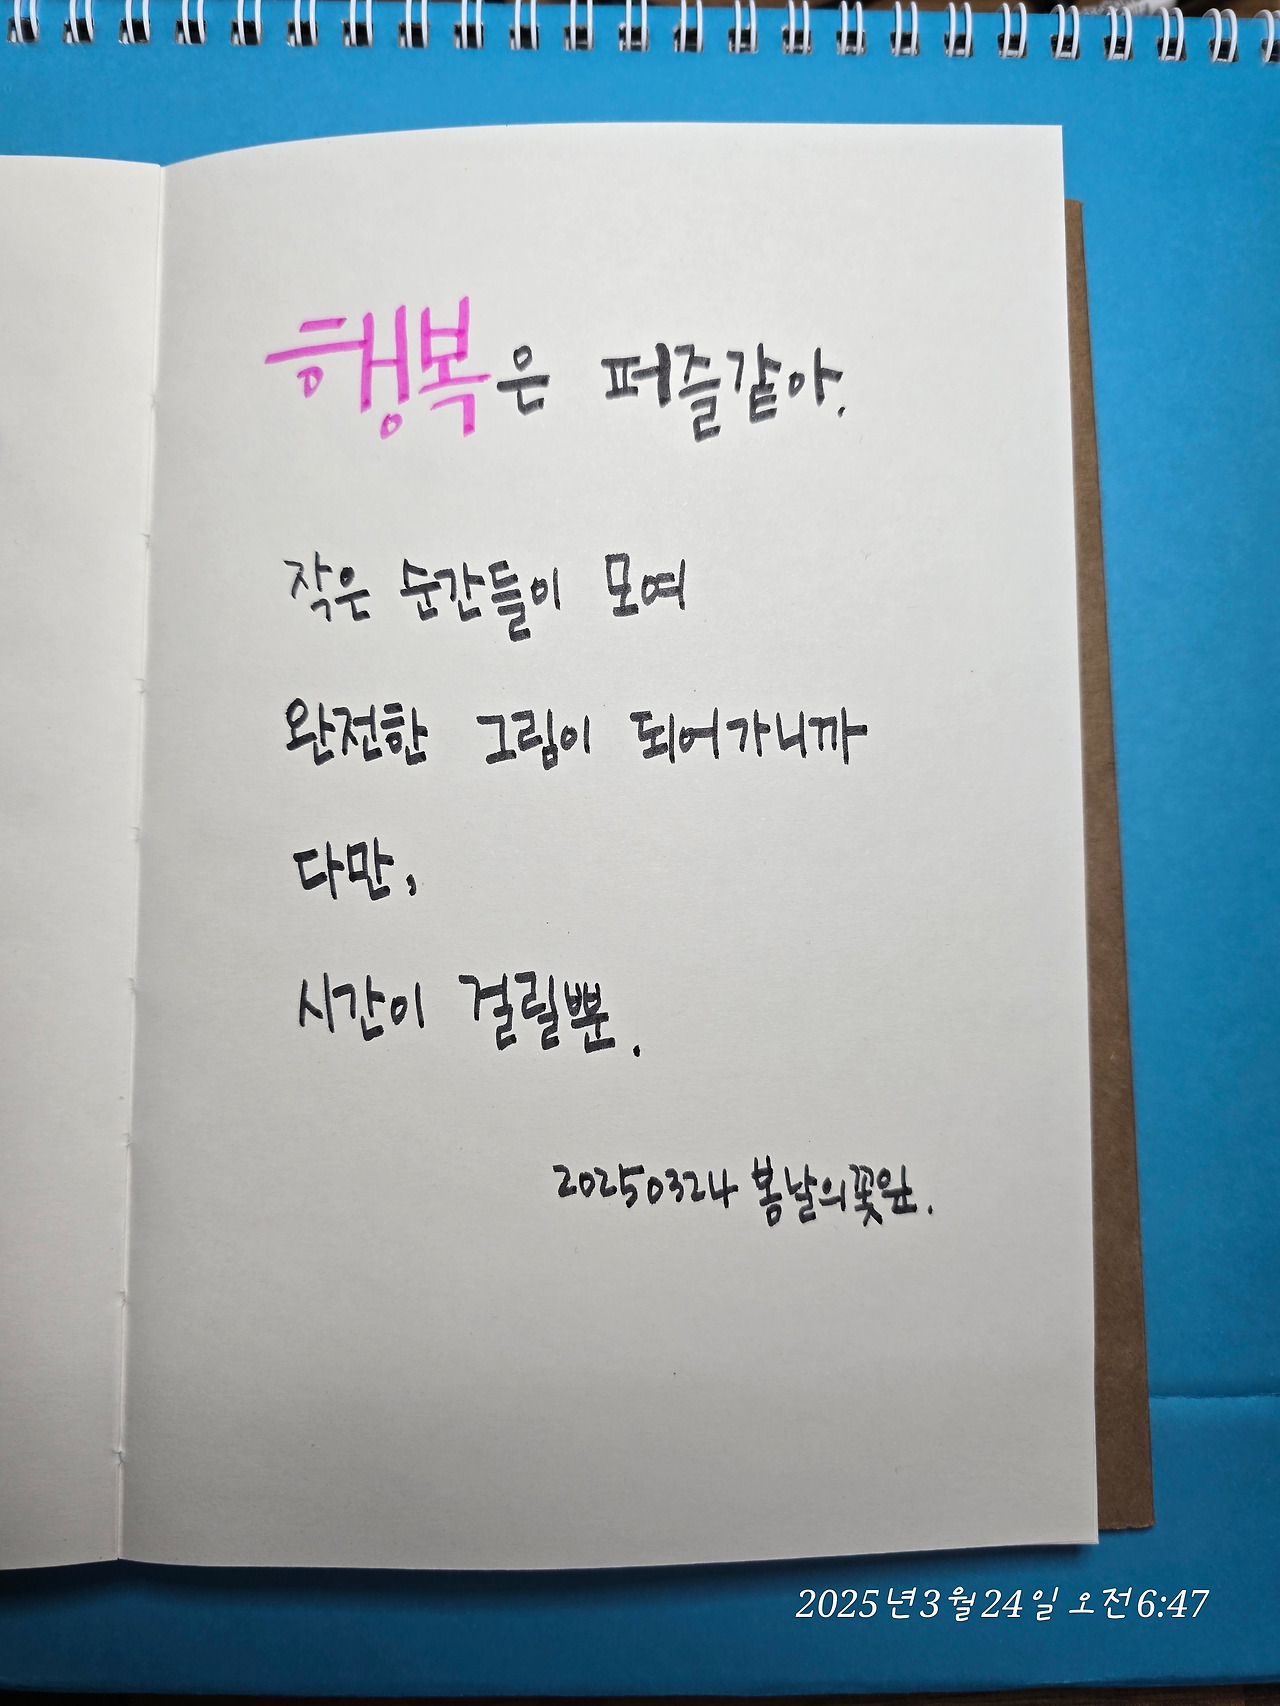 행복은 퍼즐같아.
작은 순간들이 모여
완전한 그림이 되어가니까
다만,
시간이 걸릴뿐.
20250324 봄날의꽃잎.
2025년3월24일 오전6:47